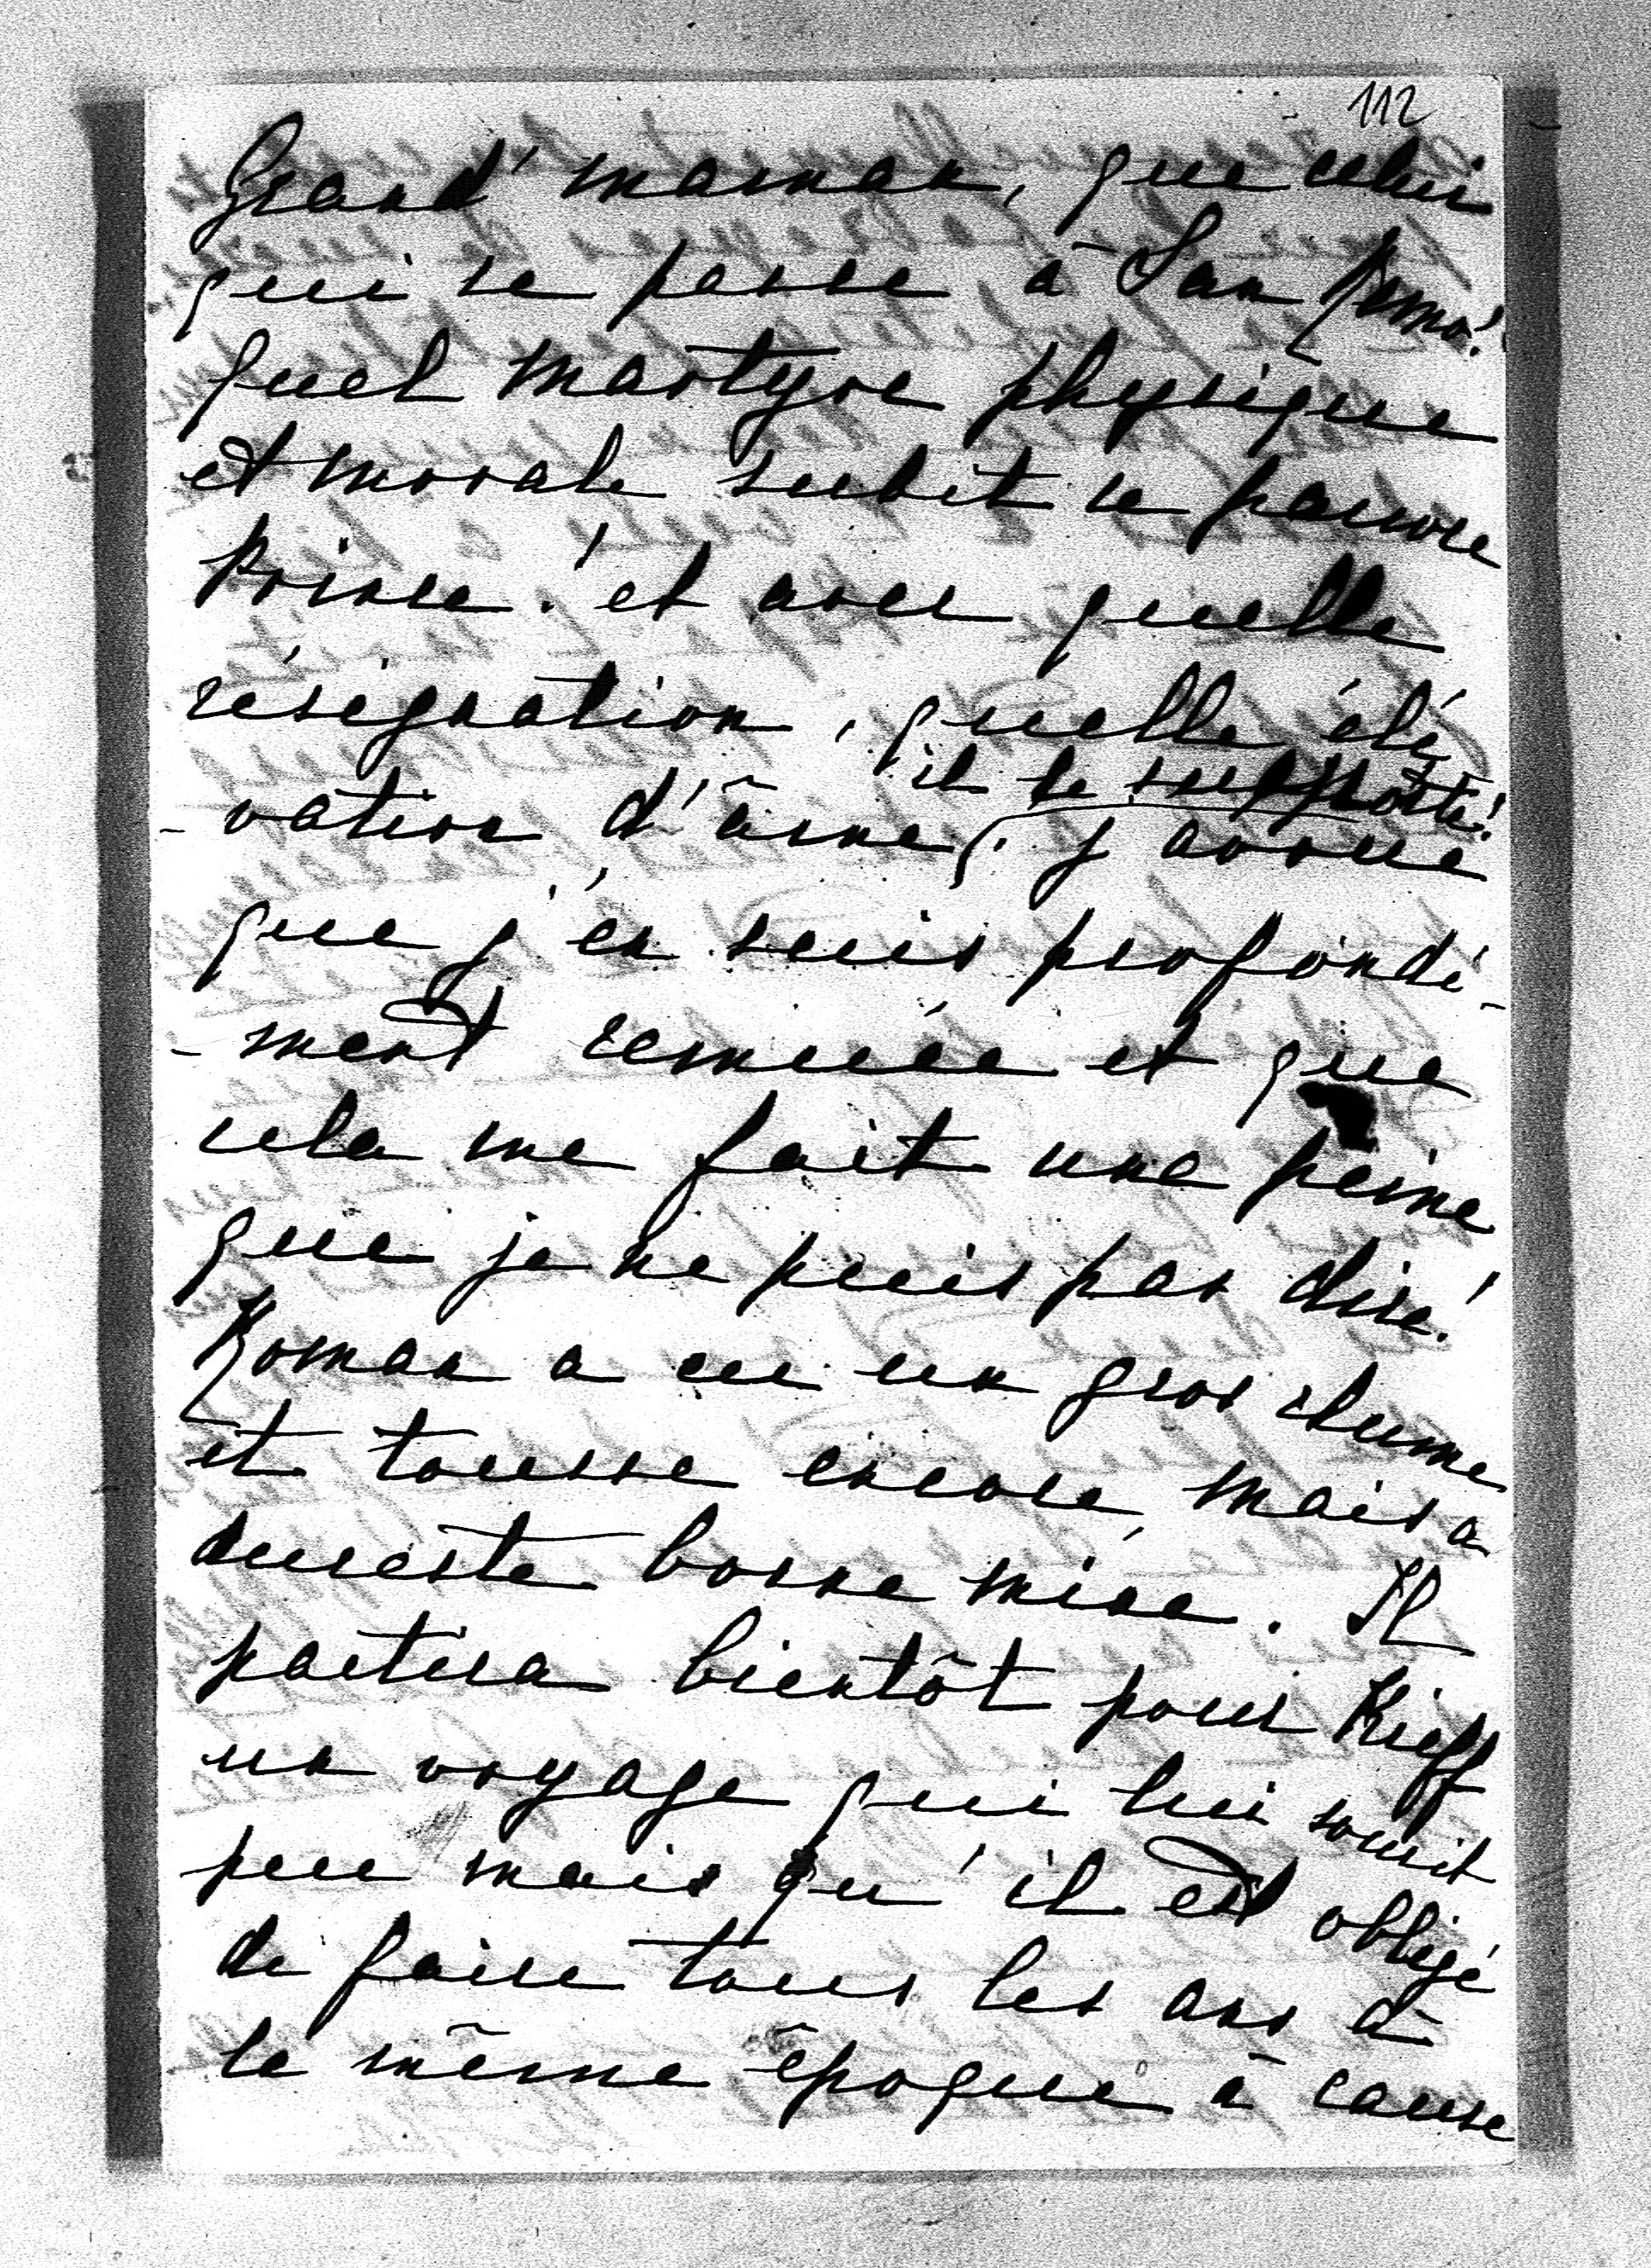 112
Grand'maman, que celui
qui se passe à San Remo!
Quel martyre physique
et morale subit ce pauvre
Prince! et avec quelle
résignation, quelle élé
il le supporte!
-vation d'âme, j'avoue
que j'en suis profondé-
-ment remuée et que
cela me fait une peine
que je ne puis pas dire!
Roman a eu un gros rhume
et tousse encore, mais a
dureste bonne mine. Il
partira bientôt pour Kieff
un voyage qui lui sourit
peu mais qu'il est obligé
de faire tous les ans à
la même époque à cause